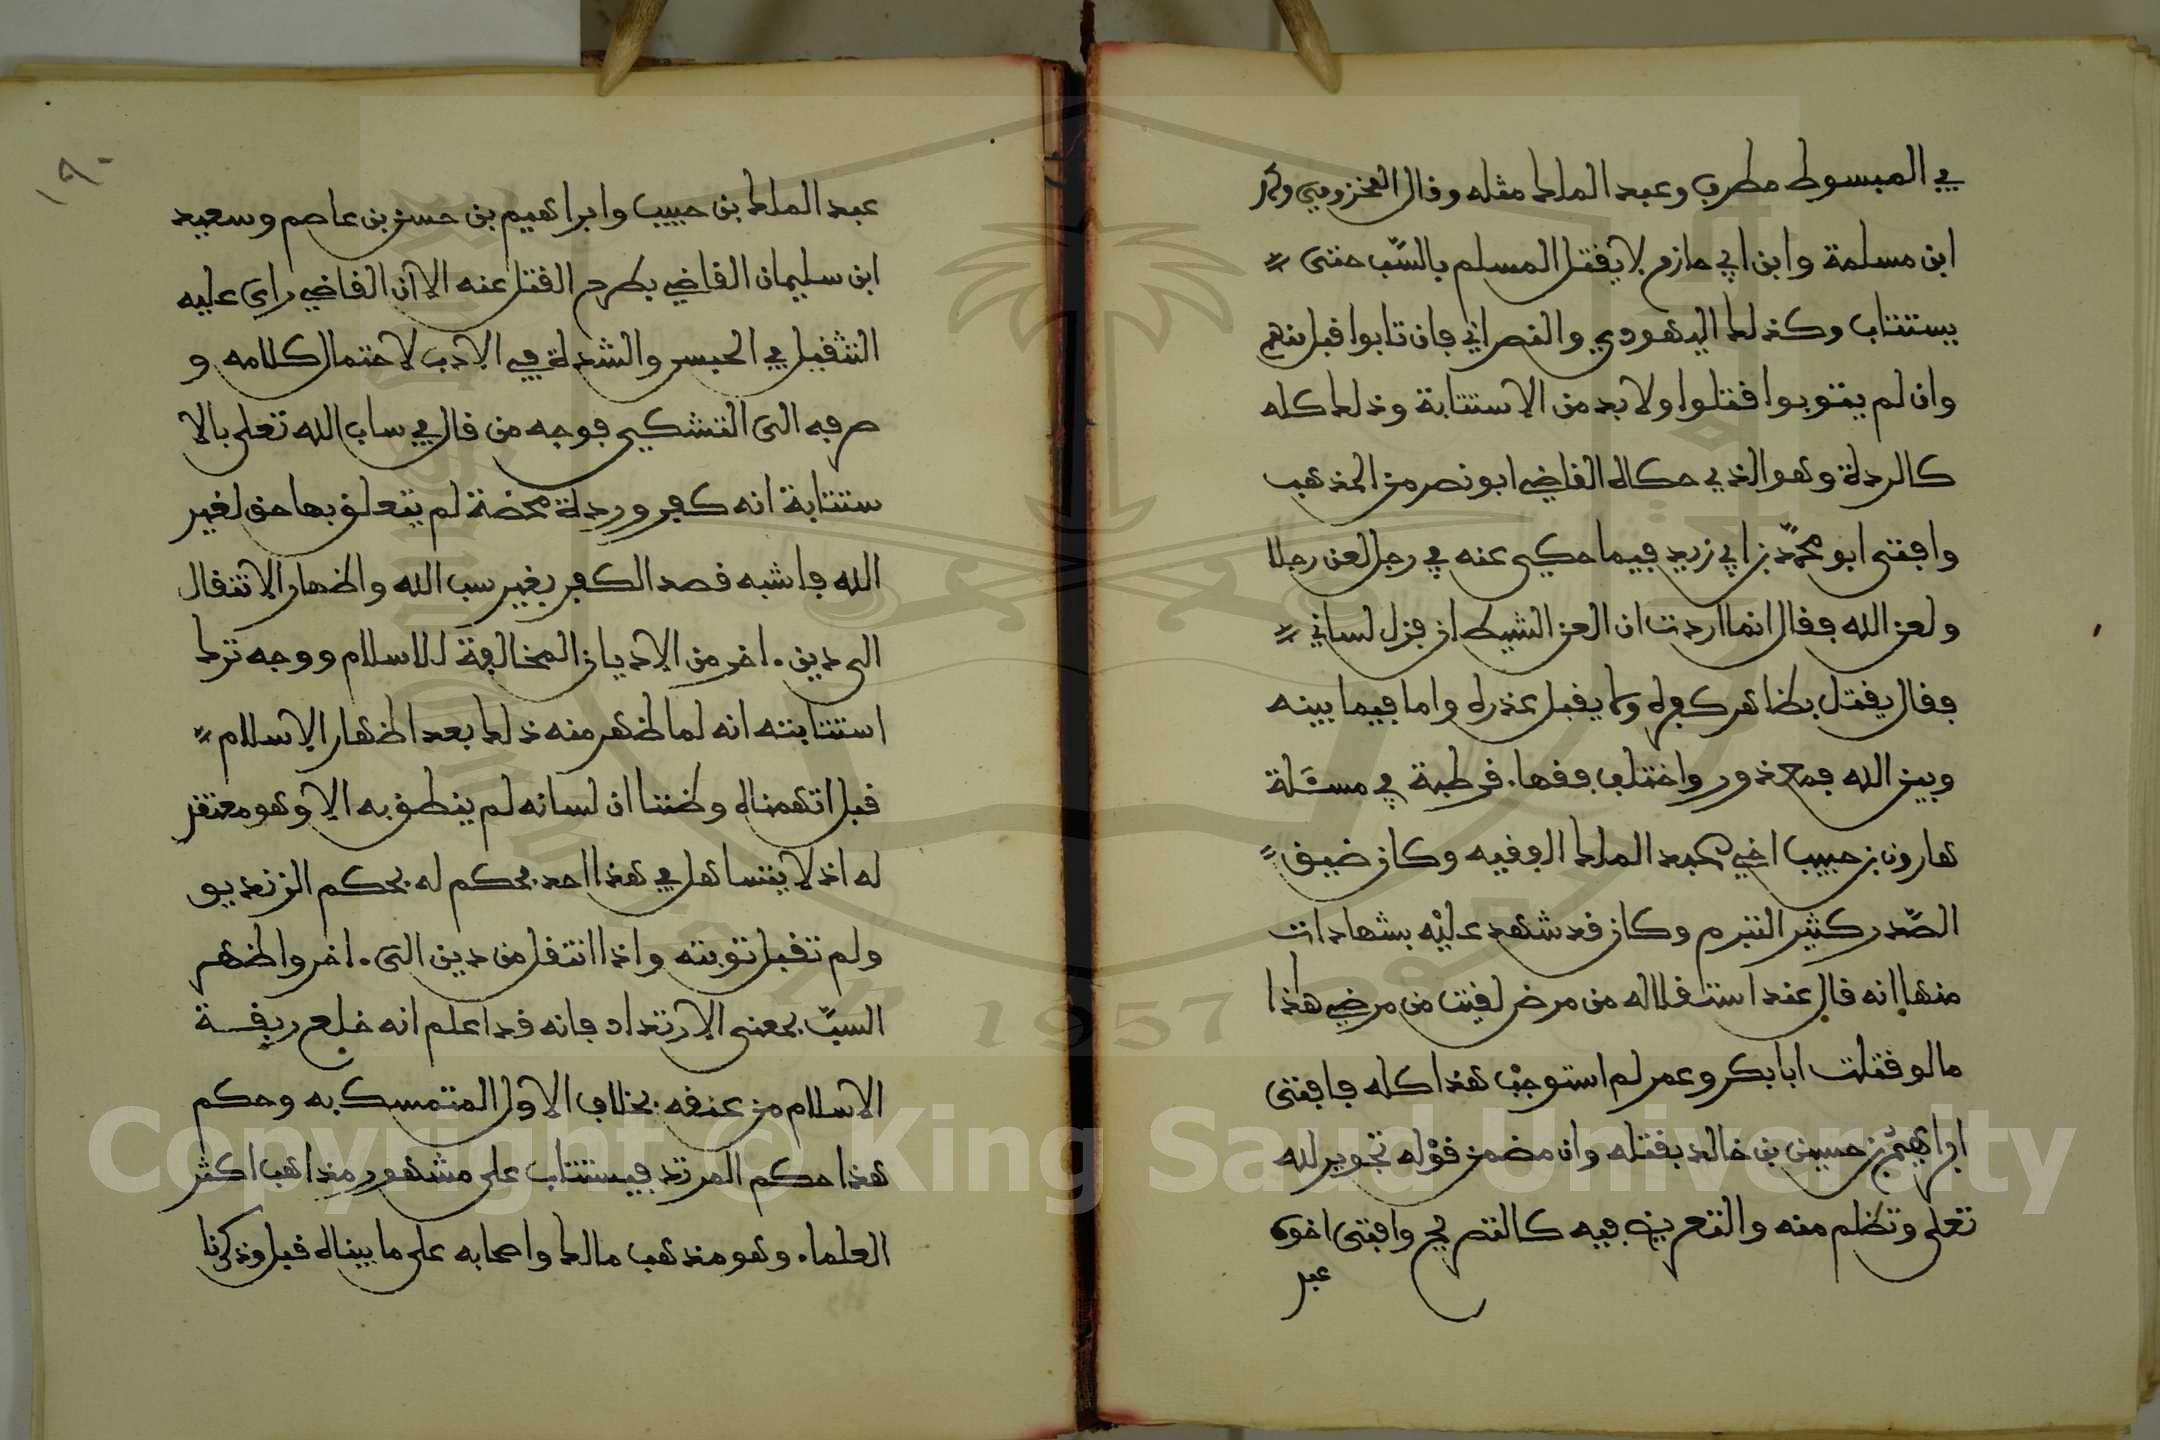 في المبسوط مطرف وعبد الملك مثله وقال المخزومي ومحمد
ابن مسلمة وابن ابي حازم لا يقتل المسلم بالسّب حتى
يستتاب وكذلك اليهودي والنصراني فان تابوا قبل منهم
وان لم يتوبوا قتلوا ولا بد من الاستتابة وذلك كله
كالردة وهو الذي حكاه القاضي ابو نصر من المذهب
وافتى ابو محمّد بن ابي زيد فيما حكي عنه في رجل لعن رجلا
ولعن الله فقال انما اردت ان العن الشيطان فزل لساني
فقال يقتل بظاهر كفره ولا يقبل عذره واما فيما بينه
وبين الله فمعذور واختلف فقهاء قرطبة في مسئلة
هارون بن حبيب اخي عبد الملك الفقيه وكان ضيق
الصّدر كثير التبرم وكان قد شهد عليه بشهادات
منها انه قال عند استقلاله من مرض لقيت من مرضي هاذا
ما لو قتلت ابا بكر وعمر لم استوجب هذا كله فافتى
ابراهيم بن حسين بن خالد بقتله وان مضمن قوله تجوير لله
تعلى وتظلم منه والتعريض فيه كالتصريح وافتى اخوه
عبد
١٩٠
عبد الملك بن حبيب وابراهيم بن حسن بن عاصم وسعيد
ابن سليمان القاضي بطرح القتل عنه الا ان القاضي راى عليه
التثقيل في الحبس والشدة في الادب لاحتمال كلامه و
صرفه الى التشكي فوجه من قال في ساب الله تعلى بالا
ستتابة انه كفر وردة محضة لم يتعلق بها حق لغير
الله فاشبه قصد الكفر بغير سب الله واظهار الانتقال
الى دين ءاخر من الاديان المخالفة للاسلام ووجه ترك
استتابته انه لما ظهر منه ذلك بعد اظهار الاسلام
قبل اتهمناه وظننا ان لسانه لم ينطق به الا وهو معتقد
له اذ لا يتساهل في هذا احد فحكم له بحكم الزنديق
ولم تقبل توبته واذا انتقل من دين الى ءاخر واظهر
السبّ بمعنى الارتداد فانه قد اعلم انه خلع ربقة
الاسلام من عنقه بخلاف الاول المتمسك به وحكم
هذا حكم المرتد فيستتاب على مشهور مذاهب اكثر
العلماء وهو مذهب مالك واصحابه على ما بيناه قبل وذكرنا
Copyright © King Saud University
1957